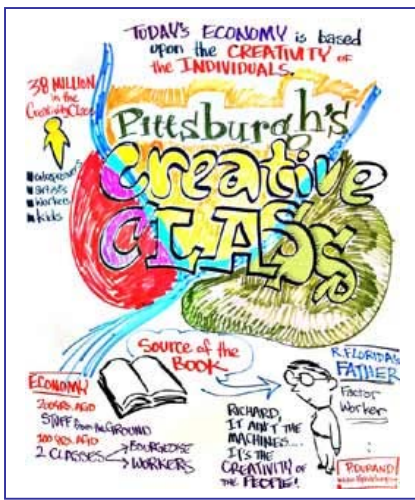 TODAY'S ECONOMY is based
upon the CREATIVITY of
the INDIVIDUALS.
38 MILLION
in the
Creativity Class
entrepreneurs
artists
workers
kids
Pittsburgh's
Creative
CLASS
Source of the
BOOK
ECONOMY
200 YRS. AGO
STUFF from the GROUND
100 YRS. AGO
2 CLASSES
BOURGEOISE
WORKERS
R. FLORIDA'S
FATHER
Factor
Worker
RICHARD,
IT AIN'T THE
MACHINES...
IT'S THE
CREATIVITY
OF the PEOPLE!
P.DURAND